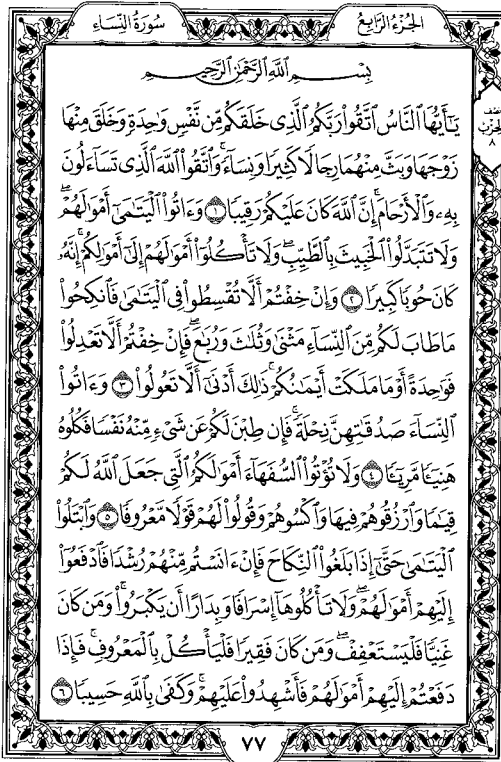 سُورَةُ النِّسَاءِ
الجُزْءُ الرَّابِعُ
بِسْمِ اللَّهِ الرَّحْمَٰنِ الرَّحِيمِ
يَٰٓأَيُّهَا النَّاسُ اتَّقُوا۟ رَبَّكُمُ الَّذِى خَلَقَكُم مِّن نَّفْسٍ وَٰحِدَةٍ وَخَلَقَ مِنْهَا
نصف الحزب ٨
زَوْجَهَا وَبَثَّ مِنْهُمَا رِجَالًا كَثِيرًا وَنِسَآءً ۚ وَاتَّقُوا۟ اللَّهَ الَّذِى تَسَآءَلُونَ
بِهِۦ وَالْأَرْحَامَ ۚ إِنَّ اللَّهَ كَانَ عَلَيْكُمْ رَقِيبًا ١ وَءَاتُوا۟ الْيَتَٰمَىٰٓ أَمْوَٰلَهُمْ ۖ
وَلَا تَتَبَدَّلُوا۟ الْخَبِيثَ بِالطَّيِّبِ ۖ وَلَا تَأْكُلُوٓا۟ أَمْوَٰلَهُمْ إِلَىٰٓ أَمْوَٰلِكُمْ ۚ إِنَّهُۥ
كَانَ حُوبًا كَبِيرًا ٢ وَإِنْ خِفْتُمْ أَلَّا تُقْسِطُوا۟ فِى الْيَتَٰمَىٰ فَانكِحُوا۟
مَا طَابَ لَكُم مِّنَ النِّسَآءِ مَثْنَىٰ وَثُلَٰثَ وَرُبَٰعَ ۖ فَإِنْ خِفْتُمْ أَلَّا تَعْدِلُوا۟
فَوَٰحِدَةً أَوْ مَا مَلَكَتْ أَيْمَٰنُكُمْ ۚ ذَٰلِكَ أَدْنَىٰٓ أَلَّا تَعُولُوا۟ ٣ وَءَاتُوا۟
النِّسَآءَ صَدُقَٰتِهِنَّ نِحْلَةً ۚ فَإِن طِبْنَ لَكُمْ عَن شَىْءٍ مِّنْهُ نَفْسًا فَكُلُوهُ
هَنِيٓـًٔا مَّرِيٓـًٔا ٤ وَلَا تُؤْتُوا۟ السُّفَهَآءَ أَمْوَٰلَكُمُ الَّتِى جَعَلَ اللَّهُ لَكُمْ
قِيَٰمًا وَارْزُقُوهُمْ فِيهَا وَاكْسُوهُمْ وَقُولُوا۟ لَهُمْ قَوْلًا مَّعْرُوفًا ٥ وَابْتَلُوا۟
الْيَتَٰمَىٰ حَتَّىٰٓ إِذَا بَلَغُوا۟ النِّكَاحَ فَإِنْ ءَانَسْتُم مِّنْهُمْ رُشْدًا فَادْفَعُوٓا۟
إِلَيْهِمْ أَمْوَٰلَهُمْ ۖ وَلَا تَأْكُلُوهَآ إِسْرَافًا وَبِدَارًا أَن يَكْبَرُوا۟ ۚ وَمَن كَانَ
غَنِيًّا فَلْيَسْتَعْفِفْ ۖ وَمَن كَانَ فَقِيرًا فَلْيَأْكُلْ بِالْمَعْرُوفِ ۚ فَإِذَا
دَفَعْتُمْ إِلَيْهِمْ أَمْوَٰلَهُمْ فَأَشْهِدُوا۟ عَلَيْهِمْ ۚ وَكَفَىٰ بِاللَّهِ حَسِيبًا ٦
٧٧